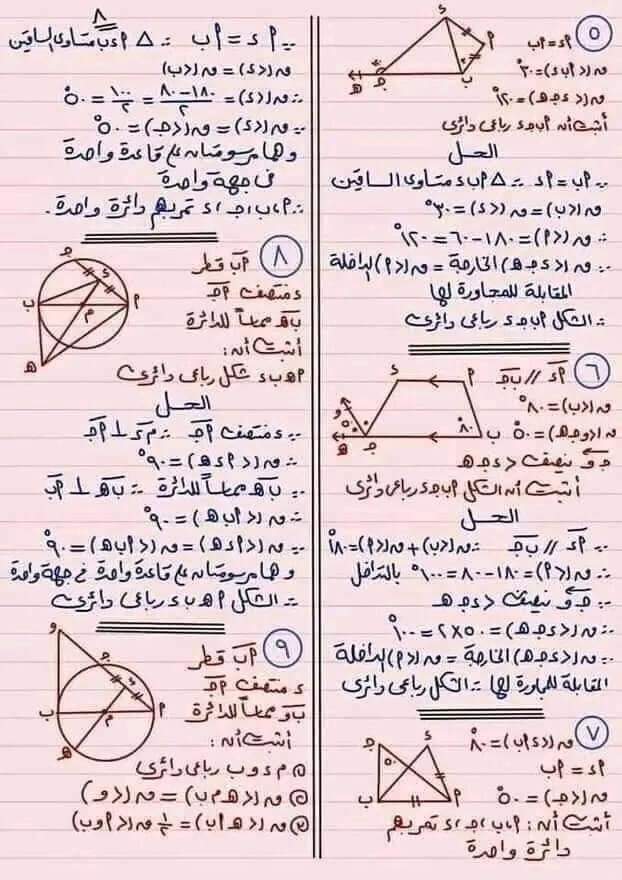 ٥
أء = أب
ق(دأبء) = ٣٠°
ق(دءجـهـ) = ١٢٠°
أثبت أنه أبجـء رباعى دائرى
الحـل
∵ أب = أء ∴ △ أبء متساوى الساقين
ق(دب) = ق(دء) = ٣٠°
∴ ق(دأ) = ١٨٠ - ٦٠ = ١٢٠°
∵ ق(دءجـهـ) الخارجة = ق(دأ) الداخلة
المقابلة للمجاورة لها
∴ الشكل أبجـء رباعى دائرى
٦
أء // بجـ
ق(دب) = ٨٠°
ق(دوجـهـ) = ٥٠°
جـو ينصف دءجـهـ
أثبت أنه الشكل أبجـء رباعى دائرى
الحـل
∵ أء // بجـ ∴ ق(دب) + ق(دأ) = ١٨٠°
∴ ق(دأ) = ١٨٠ - ٨٠ = ١٠٠° بالتداخل
∵ جـو ينصف دءجـهـ
∴ ق(دءجـهـ) = ٥٠ × ٢ = ١٠٠°
∵ ق(دءجـهـ) الخارجة = ق(دأ) الداخلة
المقابلة للمجاورة لها ∴ الشكل رباعى دائرى
٧
ق(دءأب) = ٨٠°
أء = أب
ق(دجـ) = ٥٠°
أثبت أنه : أ، ب، جـ، ء تمر بهم
دائرة واحدة
الحـل
∵ أء = أب ∴ △ أءب متساوى الساقين
ق(دء) = ق(دب)
∴ ق(دء) = ١٨٠-٨٠/٢ = ١٠٠/٢ = ٥٠°
∵ ق(دء) = ق(دجـ) = ٥٠°
وهما مرسومتان على قاعدة واحدة
فى جهة واحدة
∴ أ، ب، جـ، ء تمر بهم دائرة واحدة.
٨
أب قطر
ء منتصف أجـ
بهـ مماساً للدائرة
أثبت أنه :
أهـبء شكل رباعى دائرى
الحـل
∵ ء منتصف أجـ ∴ مء ⊥ أجـ
∴ ق(دأءهـ) = ٩٠°
∵ بهـ مماساً للدائرة ∴ بهـ ⊥ أب
∴ ق(دأبهـ) = ٩٠°
∵ ق(دأءهـ) = ق(دأبهـ) = ٩٠°
وهما مرسومتان على قاعدة واحدة فى جهة واحدة
∴ الشكل أهـبء رباعى دائرى
٩
أب قطر
ء منتصف أجـ
بو مماساً للدائرة
أثبت أنه :
① مءوب رباعى دائرى
② ق(دهـمب) = ق(دو)
③ ق(دهـأب) = ١/٢ ق(دأوب)